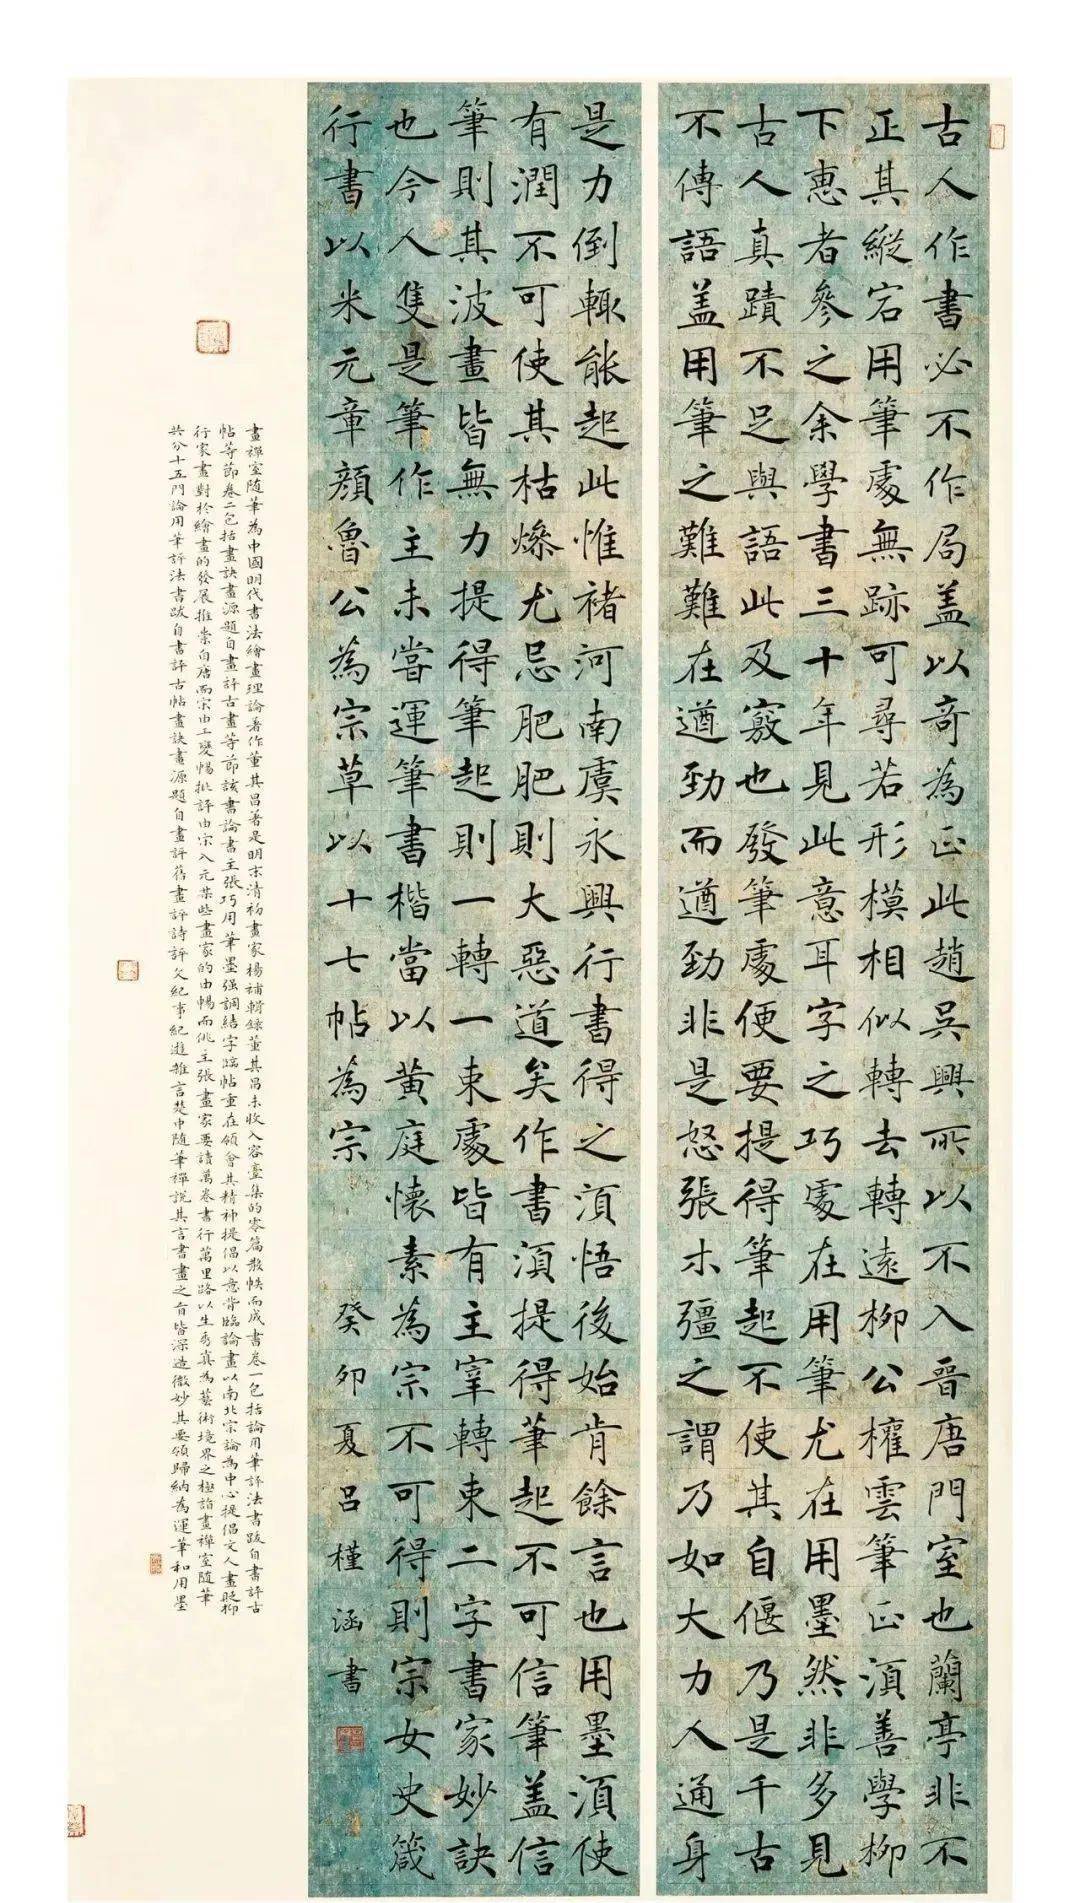 古人作書必不作局盖以奇為正此趙吳興所以不入晉唐門室也蘭亭非不
正其縱宕用筆處無跡可尋若形模相似轉去轉遠柳公權雲筆正湏善學柳
下惠者參之余學書三十年見此意耳字之巧處在用筆尤在用墨然非多見
古人真蹟不足與語此及竅也發筆處便要提得筆起不使其自偃乃是千古
不傳語盖用筆之難難在遒勁而遒勁非是怒張木彊之謂乃如大力人通身
是力倒輙能起此惟褚河南虞永興行書得之湏悟後始肯餘言也用墨湏使
有潤不可使其枯燥尤忌肥肥則大惡道矣作書湏提得筆起不可信筆盖信
筆則其波畫皆無力提得筆起則一轉一束處皆有主宰轉束二字書家妙訣
也今人隻是筆作主未嘗運筆書楷當以黃庭懷素為宗不可得則宗女史箴
行書以米元章顏魯公為宗草以十七帖為宗 癸卯夏呂槿涵書
畫禪室隨筆為中國明代書法繪畫理論著作董其昌著是明末清初畫家楊補輯錄董其昌未收入容臺集的零篇散帙而成書卷一包括論用筆評法書跋自書評古
帖等節卷二包括畫訣畫源題自畫評古畫等節該書論書主張巧用筆墨强調結字臨帖重在領會其精神提倡以意背臨論畫以南北宗論為中心提倡文人畫貶抑
行家畫對於繪畫的發展推崇自唐而宋由工變暢批評由宋入元某些畫家的由暢而佻主張畫家要讀萬卷書行萬里路以生秀真為藝術境界之極詣畫禪室隨筆
共分十五門論用筆評法書跋自書評古帖畫訣畫源題自畫評舊畫評詩評文紀事紀遊雜言楚中隨筆禪說其言書畫之旨皆深造微妙其要領歸納為運筆和用墨